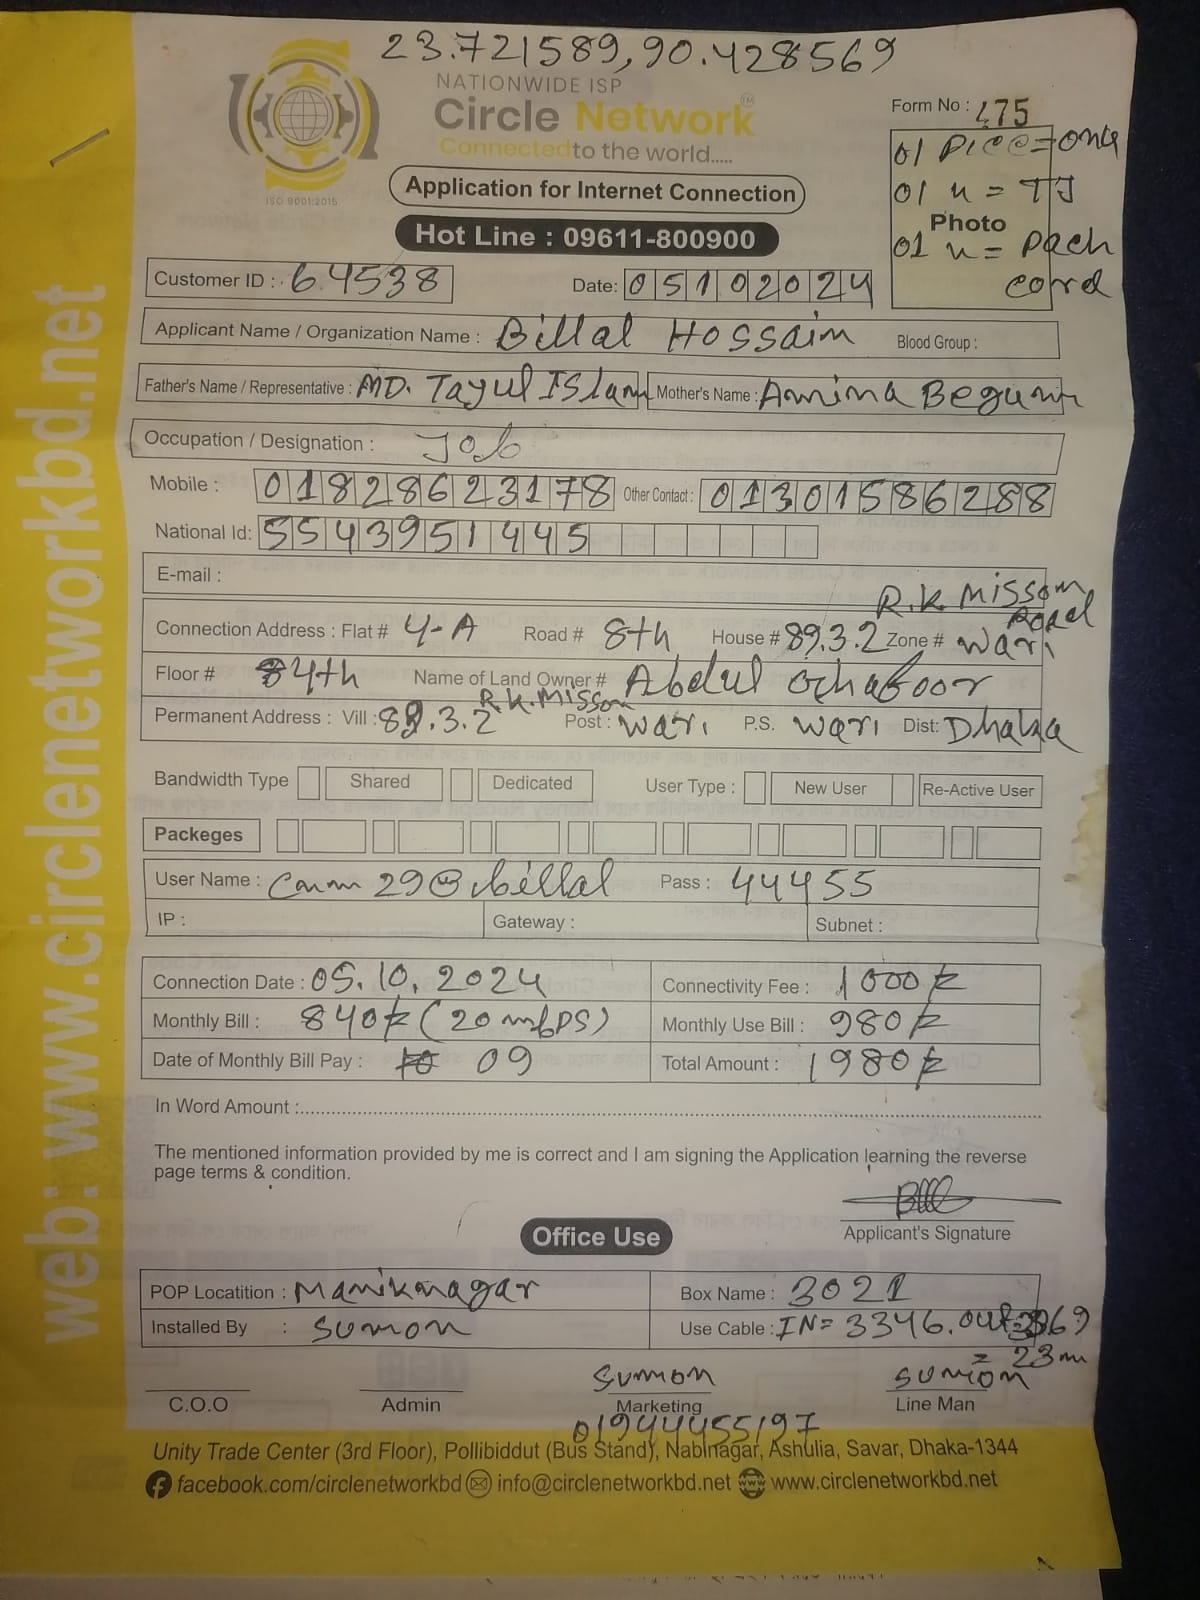 23.721589,90.428569
NATIONWIDE ISP
Circle Network™
Connected to the world.....
ISO 9001:2015
Form No : 475
Application for Internet Connection
Hot Line : 09611-800900
01 Piece = onu
01 u = TJ
Photo
01 u = Pach
cord
Customer ID : 64538 Date: 05102024
Applicant Name / Organization Name : Billal Hossain Blood Group :
Father's Name / Representative : MD. Tayul Islam Mother's Name : Amina Begum
Occupation / Designation : Job
Mobile : 01828623178 Other Contact : 01301586288
National Id: 5543951445
E-mail :
R.K Missom
Road
Connection Address : Flat # 4-A Road # 8th House # 89.3.2 Zone # Wari
Floor # 4th Name of Land Owner # Abdul
R.K.Missom
Permanent Address : Vill : 89.3.2 Post : Wari P.S. Wari Dist: Dhaka
Bandwidth Type Shared Dedicated User Type : New User Re-Active User
Packeges
User Name : Pass : 44455
IP : Gateway : Subnet :
Connection Date : 05.10.2024 Connectivity Fee : 1000/-
Monthly Bill : 840/- (20 mbps) Monthly Use Bill : 980/-
Date of Monthly Bill Pay : 09 Total Amount : 1980/-
In Word Amount :
The mentioned information provided by me is correct and I am signing the Application learning the reverse
page terms & condition.
Applicant's Signature
Office Use
POP Locatition : Maniknagar Box Name : 3021
Installed By : Sumon Use Cable : IN= 3346. out=3369
= 23m
Sumon Sumon
C.O.O Admin Marketing Line Man
01944455197
Unity Trade Center (3rd Floor), Pollibiddut (Bus Stand), Nabinagar, Ashulia, Savar, Dhaka-1344
facebook.com/circlenetworkbd info@circlenetworkbd.net www.circlenetworkbd.net
web: www.circlenetworkbd.net